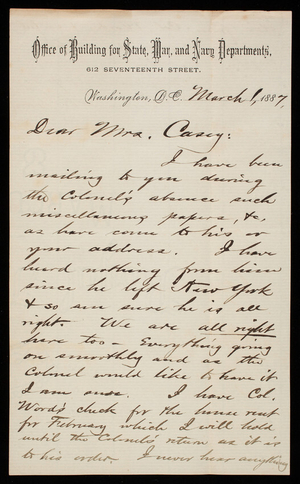 Office of Building for State, War, and Navy Departments,
612 SEVENTEENTH STREET.
Washington, D.C. March 1, 1887.
Dear Mrs. Casey:
I have been
mailing to you during
the Colonel's absence such
miscellaneous papers, &c.
as have come to his or
your address. I have
heard nothing from him
since he left New York
& so am sure he is all
right. We are all right
here too – Everything going
on smoothly and as the
Colonel would like to have it
I am sure. I have Col.
Word's check for the house rent
for February which I will hold
until the Colonel's return as it is
to his order. I never hear anything